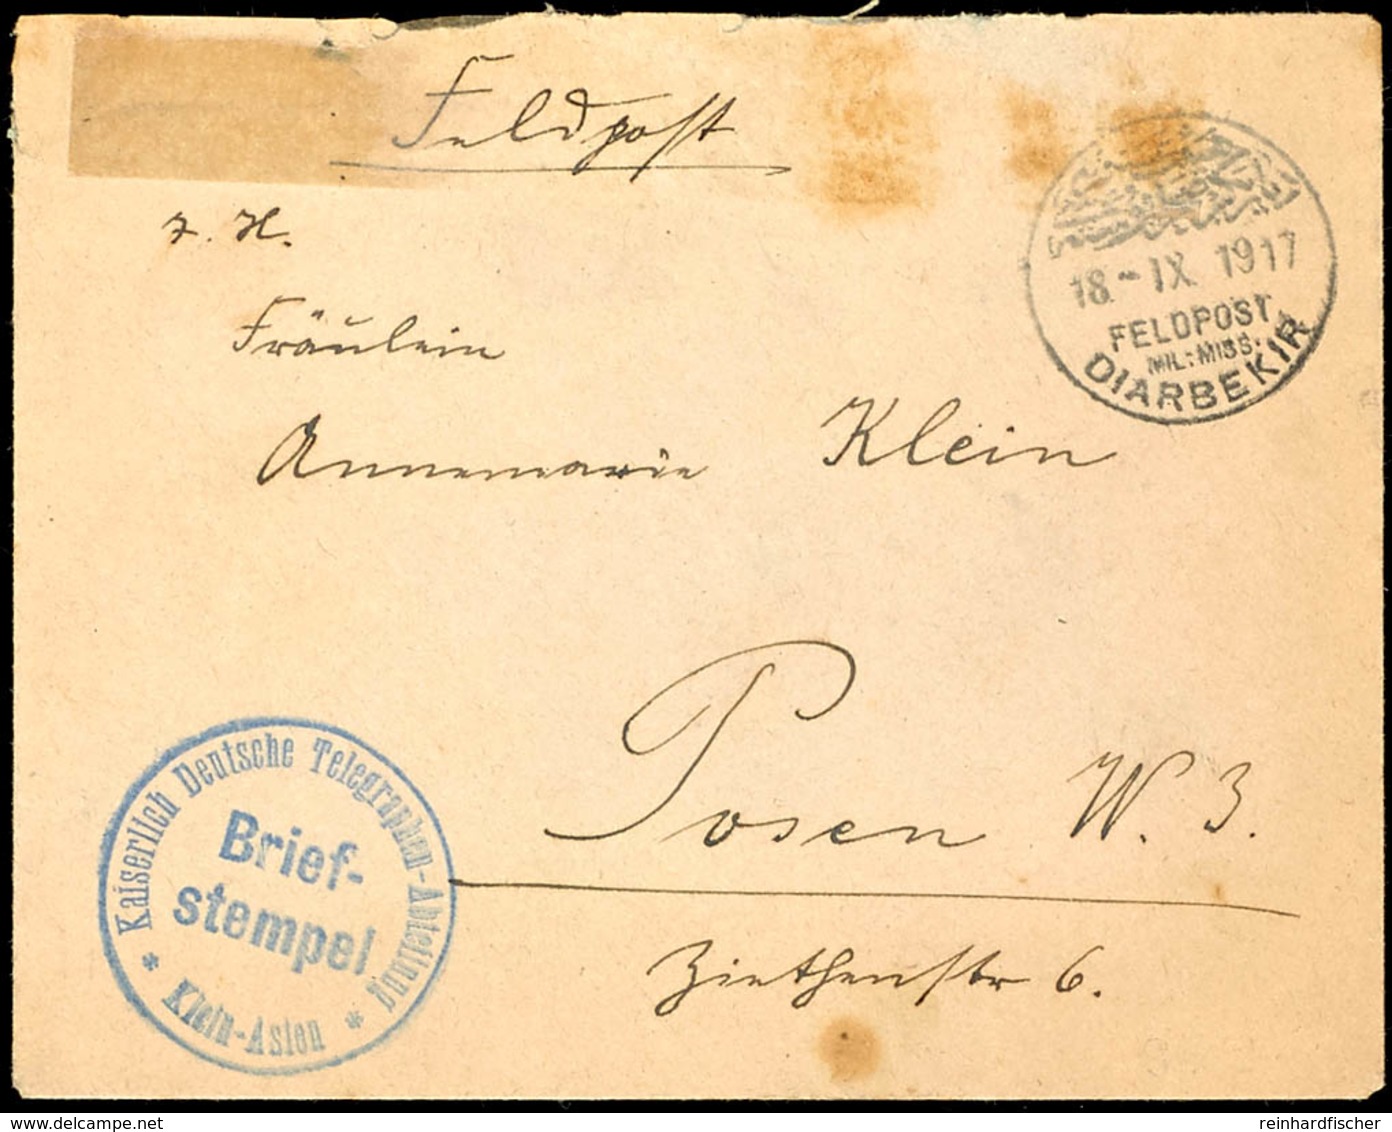 Feldpost
z. H.
Fräulein
Annemarie Klein
Posen W. 3.
Ziethenstr 6.
18.-IX. 1917
FELDPOST
MIL: MISS.
DIARBEKIR
Kaiserlich Deutsche Telegraphen-Abteilung
Brief-
stempel
* Klein-Asien *
reinhardfischer